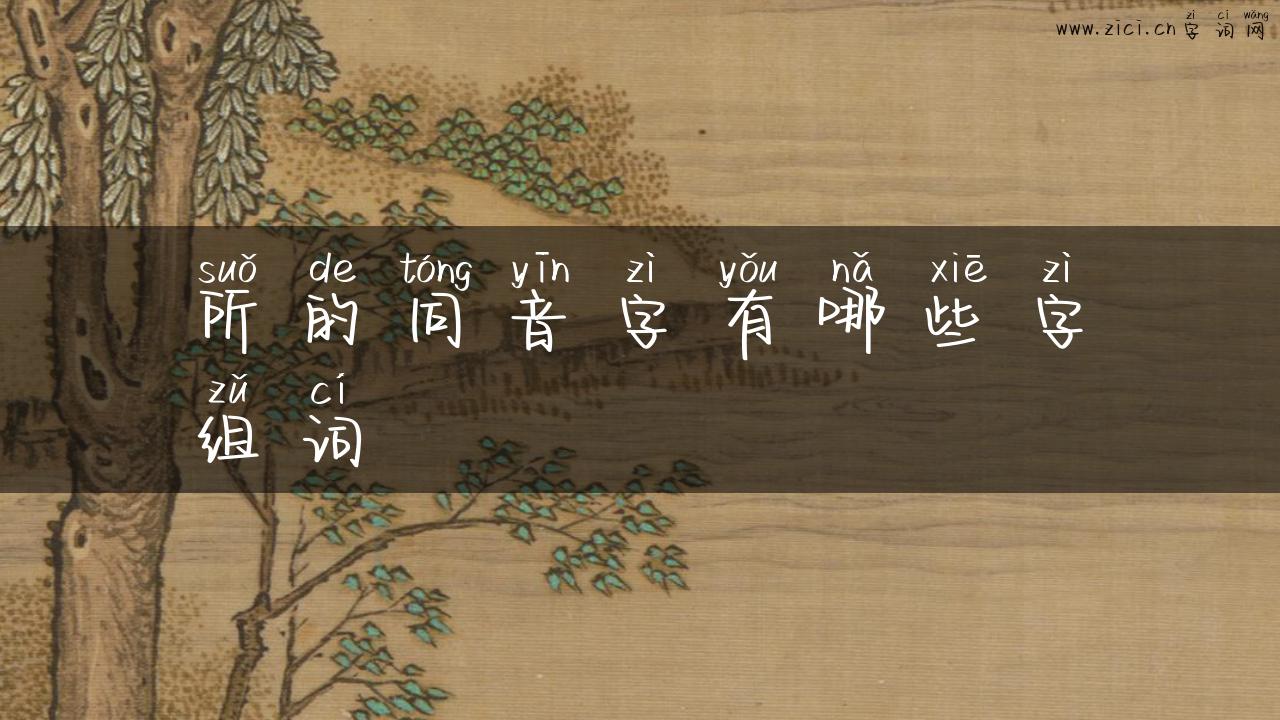 zì cí wǎng
www.zici.cn 字词网
suǒ de tóng yīn zì yǒu nǎ xiē zì
所的同音字有哪些字
zǔ cí
组词